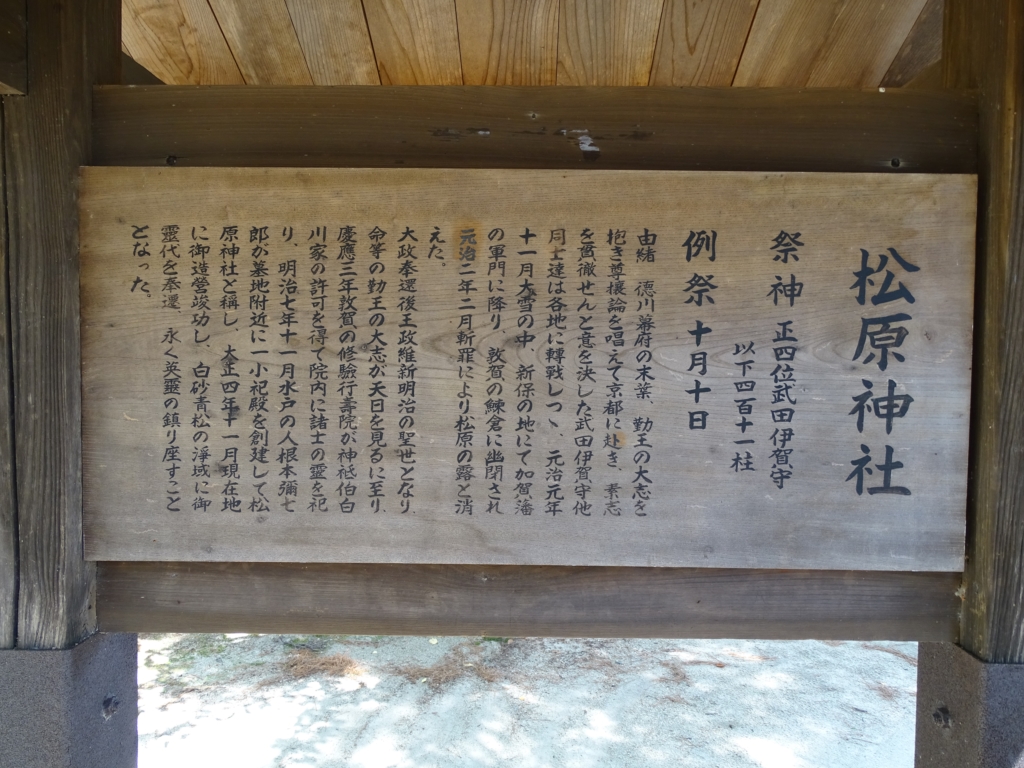 松原神社
祭神 正四位武田伊賀守
以下四百十一柱
例祭 十月十日
由緒 德川幕府の末葉、勤王の大志を
抱き尊攘論を唱えて京都に赴き、素志
を貫徹せんと意を決した武田伊賀守他
同士達は各地に轉戦しつヽ、元治元年
十一月大雪の中、新保の地にて加賀藩
の軍門に降り、敦賀の鰊倉に幽閉され
元治二年二月斬罪により松原の露と消
えた。
大政奉還後王政維新明治の聖世となり
命等の勤王の大志が天日を見るに至り
慶應三年敦賀の修驗行壽院が神祗伯白
川家の許可を得て院内に諸士の靈を祀
り、明治七年十一月水戸の人根本彌七
郎が墓地附近に一小祀殿を創建して松
原神社と稱し、大正四年十一月現在地
に御造營竣功し、白砂青松の淨域に御
靈代を奉還、永く英靈の鎮り座すこと
となった。